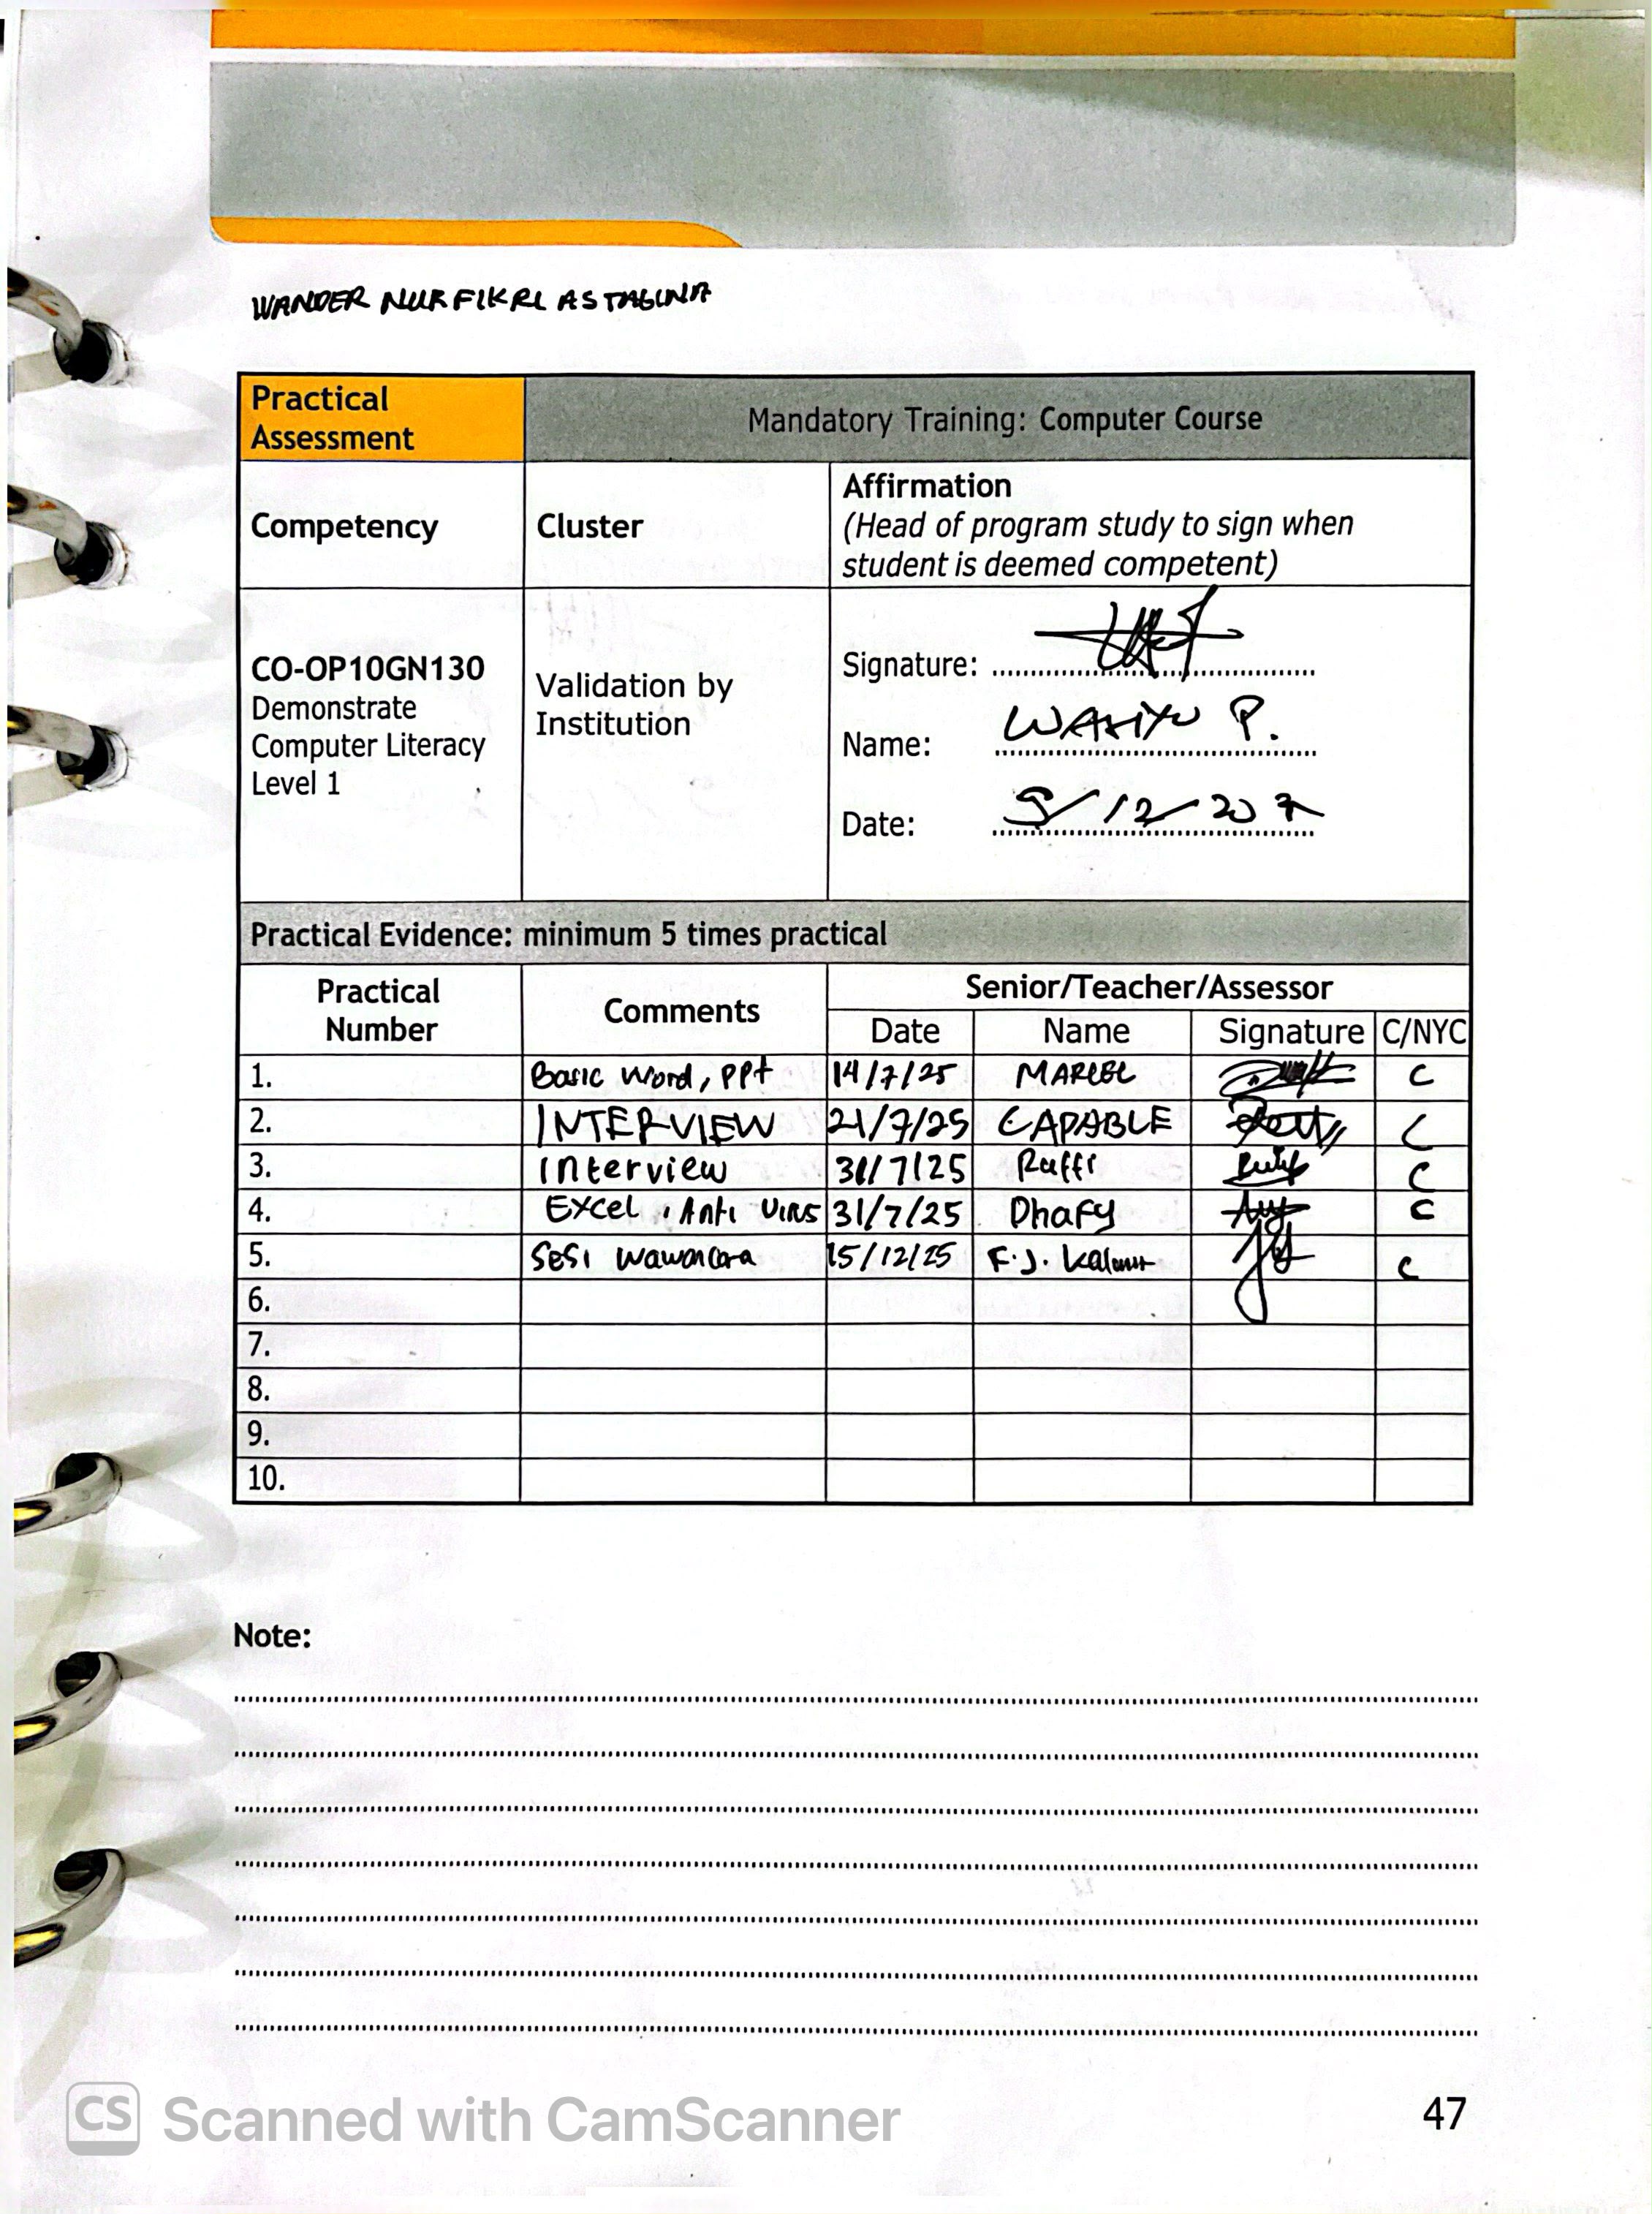 WANDER NUR FIKRI ASTAGUNA
Practical Assessment
Mandatory Training: Computer Course
Competency
Cluster
Affirmation
(Head of program study to sign when
student is deemed competent)
CO-OP10GN130
Demonstrate
Computer Literacy
Level 1
Validation by
Institution
Signature:
Name: WAHYU P.
Date: 5/12/20
Practical Evidence: minimum 5 times practical
Practical Number
Comments
Senior/Teacher/Assessor
Date Name Signature C/NYC
1. Basic Word, PPt 14/7/25 MARCEL C
2. INTERVIEW 21/7/25 CAPABLE C
3. Interview 31/7/25 Raffi C
4. Excel, Anti Virus 31/7/25 Dhafy C
5. Sesi Wawancara 15/12/25 F.J. C
6.
7.
8.
9.
10.
Note:
CS Scanned with CamScanner
47